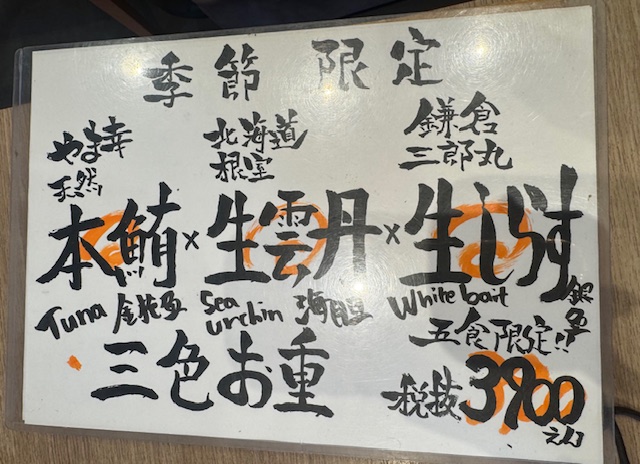 季節限定
やま幸
天然
北海道
根室
鎌倉
三郎丸
本鮪×生雲丹×生しらす
Tuna 金鎗魚
Sea urchin 海胆
White bait 銀魚
五食限定!!
三色お重
税抜3900えん